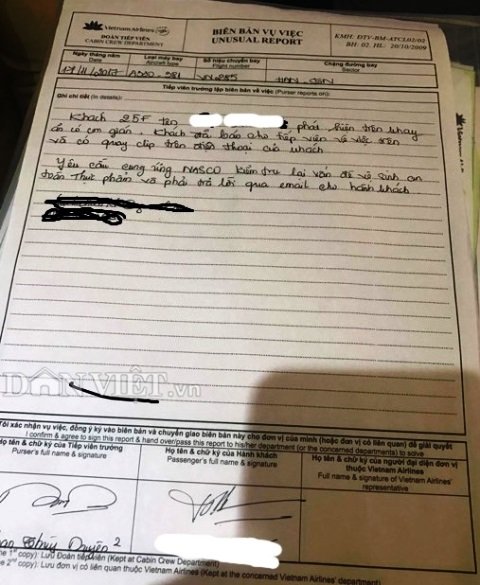 Vietnam Airlines
ĐOÀN TIẾP VIÊN
CABIN CREW DEPARTMENT
BIÊN BẢN VỤ VIỆC
UNUSUAL REPORT
KMH: ĐTV-BM-ATCL02/02
BH: 02. HL: 20/10/2009
Ngày tháng năm
Date
Loại máy bay
Aircraft type
Số hiệu chuyến bay
Flight number
Chặng đường bay
Sector
/11/2017
VN285
HAN
Tiếp viên trưởng lập biên bản về việc (Purser reports on):
Ghi chi tiết (in details):
Khách 25F tên phát hiện trên khay
ăn có con gián. Khách đã báo cho tiếp viên về việc trên
và có quay clip trên điện thoại của khách
Yêu cầu cung ứng NASCO kiểm tra lại vấn đề vệ sinh an
toàn Thực phẩm và phải trả lời qua email cho hành khách
DÂN VIỆT.vn
Tôi xác nhận vụ việc, đồng ý ký vào biên bản và chuyển giao biên bản này cho đơn vị của mình (hoặc đơn vị có liên quan) để giải quyết
I confirm & agree to sign this report & hand over/pass this report to his/her department (or the concerned departments) to solve
Họ tên & chữ ký của Tiếp viên trưởng
Purser's full name & signature
Họ tên & chữ ký của Hành khách
Passenger's full name & signature
Họ tên & chữ ký của người đại diện đơn vị
thuộc Vietnam Airlines
Full name & signature of Vietnam Airlines'
representative
Thúy Duyên 2
1st copy): Lưu Đoàn tiếp viên (Kept at Cabin Crew Department)
2nd copy): Lưu đơn vị có liên quan thuộc Vietnam Airlines (Kept at the concerned Vietnam Airlines'